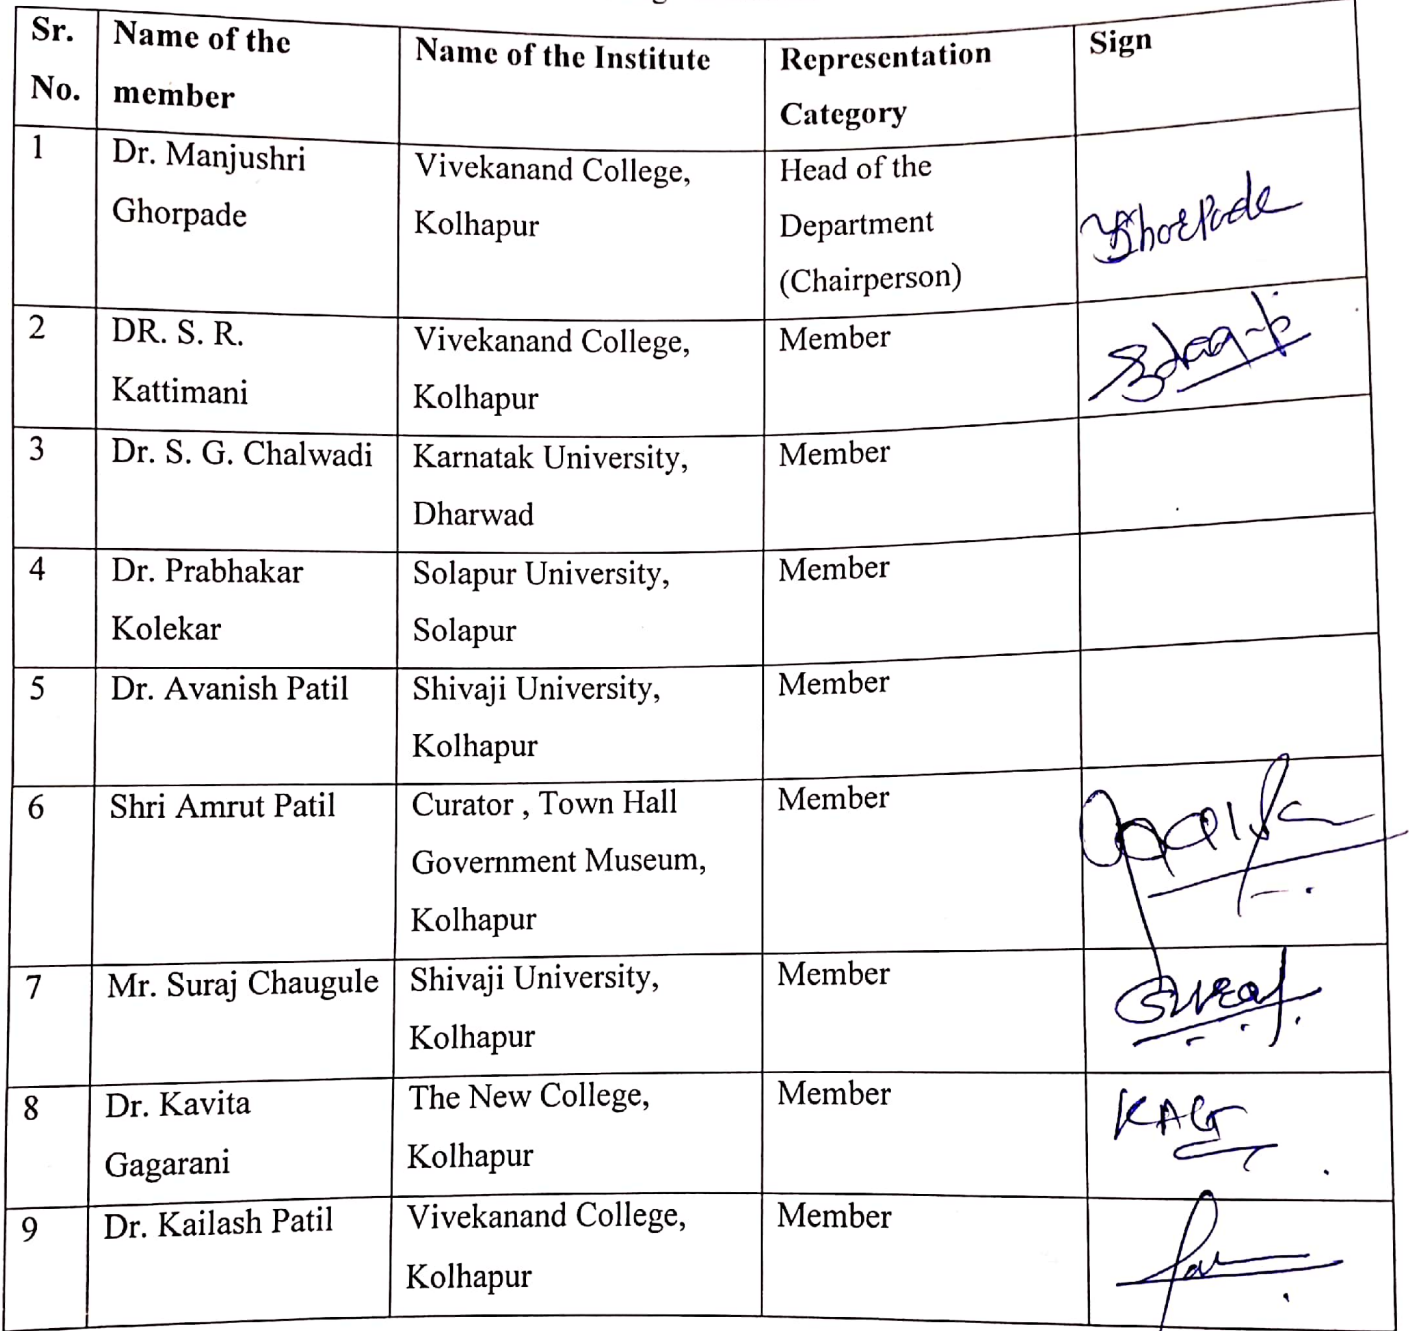 Sr. No. Name of the member Name of the Institute Representation Category Sign
1 Dr. Manjushri Ghorpade Vivekanand College, Kolhapur Head of the Department (Chairperson) Ghorpade
2 DR. S. R. Kattimani Vivekanand College, Kolhapur Member
3 Dr. S. G. Chalwadi Karnatak University, Dharwad Member
4 Dr. Prabhakar Kolekar Solapur University, Solapur Member
5 Dr. Avanish Patil Shivaji University, Kolhapur Member
6 Shri Amrut Patil Curator , Town Hall Government Museum, Kolhapur Member
7 Mr. Suraj Chaugule Shivaji University, Kolhapur Member Suraj
8 Dr. Kavita Gagarani The New College, Kolhapur Member KAG
9 Dr. Kailash Patil Vivekanand College, Kolhapur Member